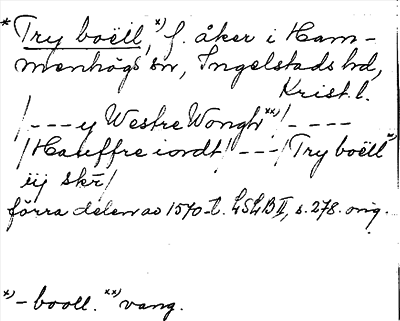 * Try boëll, x) f. åker i Ham-
menhögs sn, Ingelstads hd,
Krist. l.
/---y Westre Wongh xx)/-----
/Hauffre iordt/---/Try boëll x)
iij skr̄/
förra delen av 1570-t. LSLB II, s. 278. orig.
x) - booll. xx) vang.